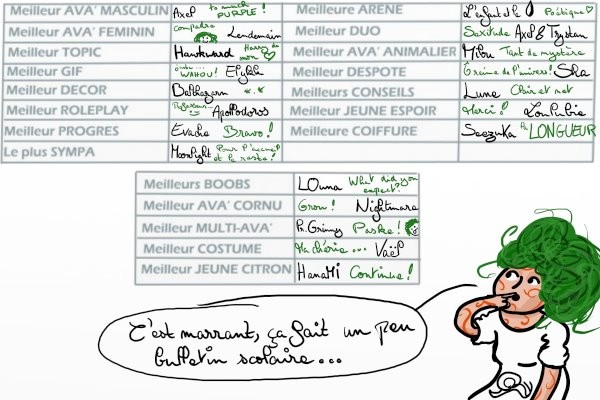 Meilleur AVA' MASCULIN Axel to much PURPLE !
Meilleur AVA' FEMININ Lendemain
Meilleur TOPIC Hawkward
Meilleur GIF WAHOU!
Meilleur DECOR Balthazarn
Meilleur ROLEPLAY Apollodoros
Meilleur PROGRES Evache Bravo !
Le plus SYMPA Moonlight Pour l'accueil et le reste !
Meilleure ARENE L'enfant et le Poétique
Meilleur DUO Axel & Trystan
Meilleur AVA' ANIMALIER Milou Tant de mystère
Meilleur DESPOTE Graine de Sha
Meilleurs CONSEILS Lune Clair et net
Meilleur JEUNE ESPOIR Merci !
Meilleure COIFFURE Seezuka LONGUEUR
Meilleurs BOOBS LOuna What did you expect?
Meilleur AVA' CORNU Grou! Nightmare
Meilleur MULTI-AVA' Pr.Grinny Paske !
Meilleur COSTUME Ma chérie... Vaël
Meilleur JEUNE CITRON HanaMi Continue !
C'est marrant, ça fait un peu
bulletin scolaire...